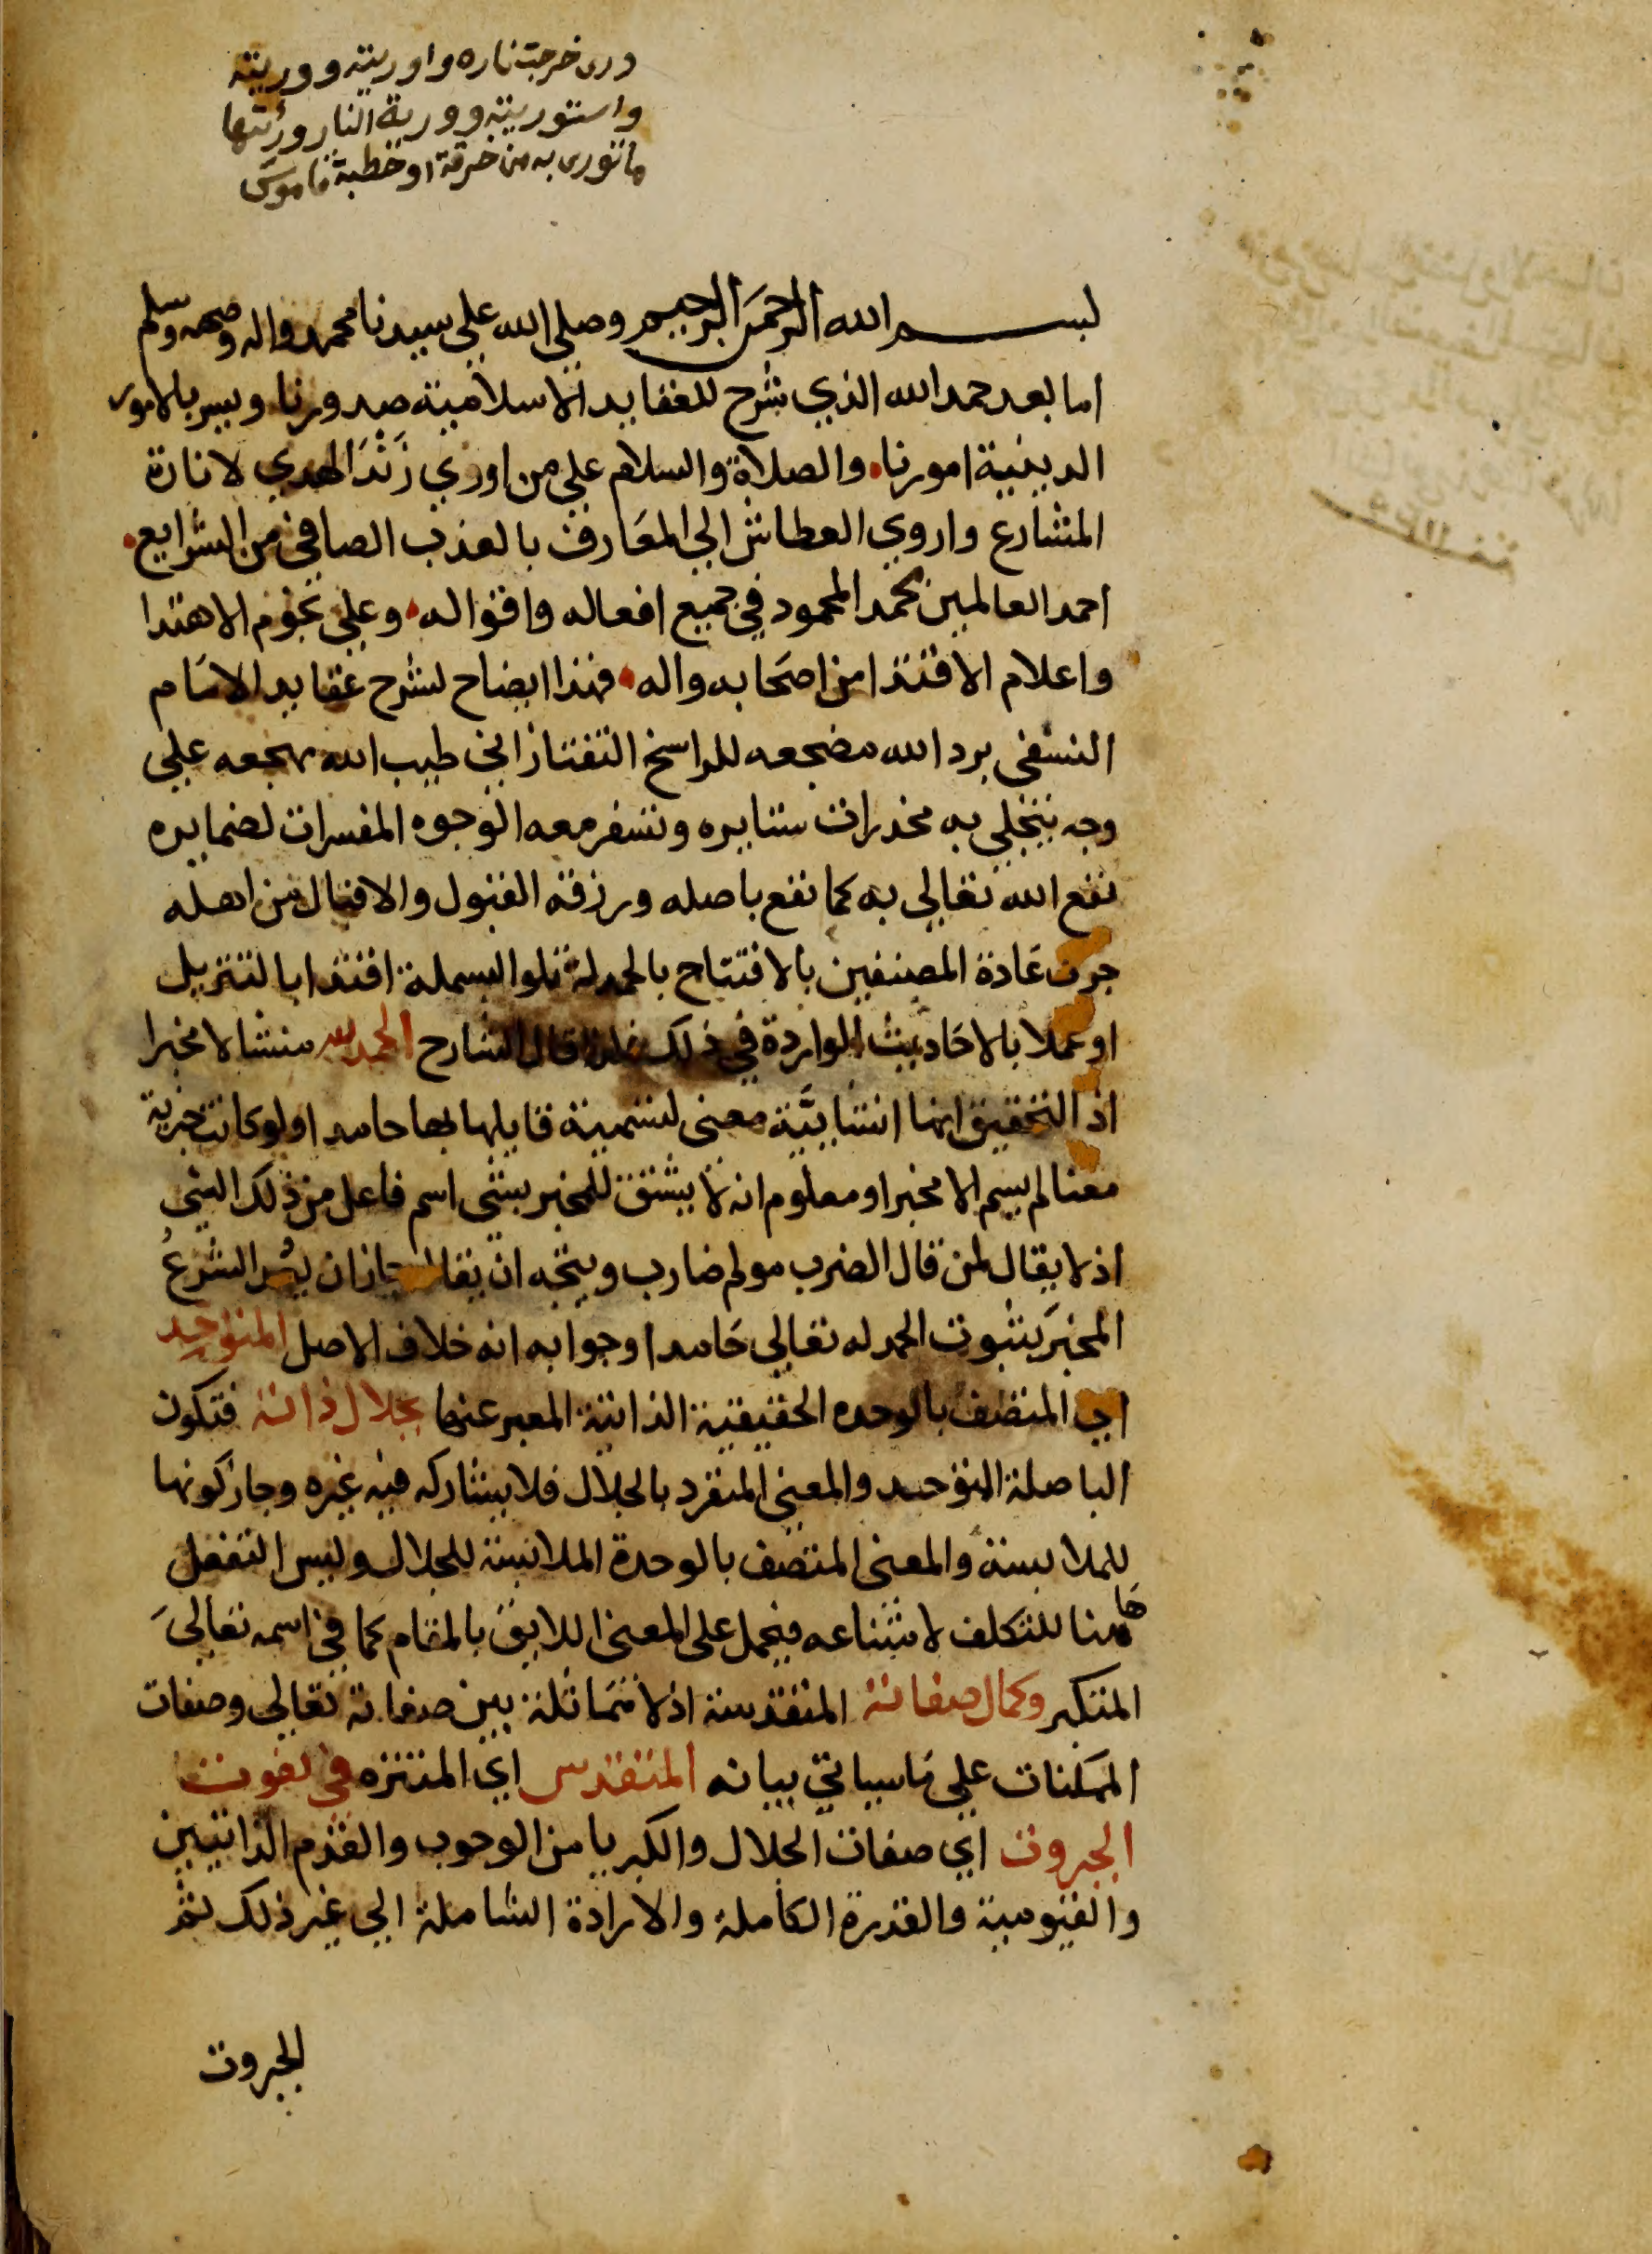 ورى خرجت ناره واوريته ووريته
واستوريته وورية النار ورئتها
ما تورى به من خرقة او حطبة قاموس
بسم الله الرحمن الرحيم وصلى الله على سيدنا محمد واله وصحبه وسلم
اما بعد حمد الله الذي شرح للعقايد الاسلامية صدورنا ويسر بالامور
الدينية امورنا والصلاة والسلام علي من اوري زَنْدَ الهدي لانارة
المشارع واروي العطاش الي المعارف بالعذب الصافي من الشرايع
احمد العالمين محمد المحمود في جميع افعاله واقواله وعلي نجوم الاهتدا
واعلام الاقتدا من اصحابه واله فهذا ايضاح لشرح عقايد الامام
النسفى برد الله مضجعه للراسخ التفتازاني طيب الله مهجعه علي
وجه يتجلي به مخدرات ستايره وتسفر معه الوجوه المفسرات لضمايره
نفع الله تعالي به كما نفع باصله ورزقه القبول والاقبال من اهله
جرت عادة المصنفين بالافتتاح بالحمدلة تلو البسملة اقتدا بالتنزيل
او عملا بالاحاديث الواردة في ذلك فلذا قال الشارح الحمد لله منشا لا مخبرا
اذ التحقيق انها انشاييَّة معنى لتسمية قايلها بها حامدا ولو كانت خبرية
معنا لم يسم الا مخبرا ومعلوم انه لا يشتق للمخبر بشى اسم فاعل من ذلك الشى
اذ لا يقال لمن قال الضرب مولم ضارب ويتجه ان يقال جاز ان الشرعُ
المخبرَ بثبوت الحمد له تعالي حامدا وجوابه انه خلاف الاصل المتوحد
اي المتصف بالوحده الحقيقية الذاتية المعبر عنها بجلال ذاته فتكون
البا صلة التوحد والمعنى المنفرد بالجلال فلا يشاركه فيه غيره وجاز كونها
للملابسة والمعنى المتصف بالوحدة الملابسة للجلال وليس التفعل
هاهنا للتكلف لامتناعه فيحمل على المعنى اللايق بالمقام كما في اسمه تعالىَ
المتكبر وكمال صفاته المتقدسة اذ لا مماثلة بين صفاته تعالي وصفات
الممكنات علي ما سياتي بيانه المتقدس اي المتنزه في نعوت
الجبروت اي صفات الجلال والكبريا من الوجوب والقدم الذاتيين
والقيومية والقدرة الكاملة والارادة الشاملة الي غير ذلك ثم
الجبروت